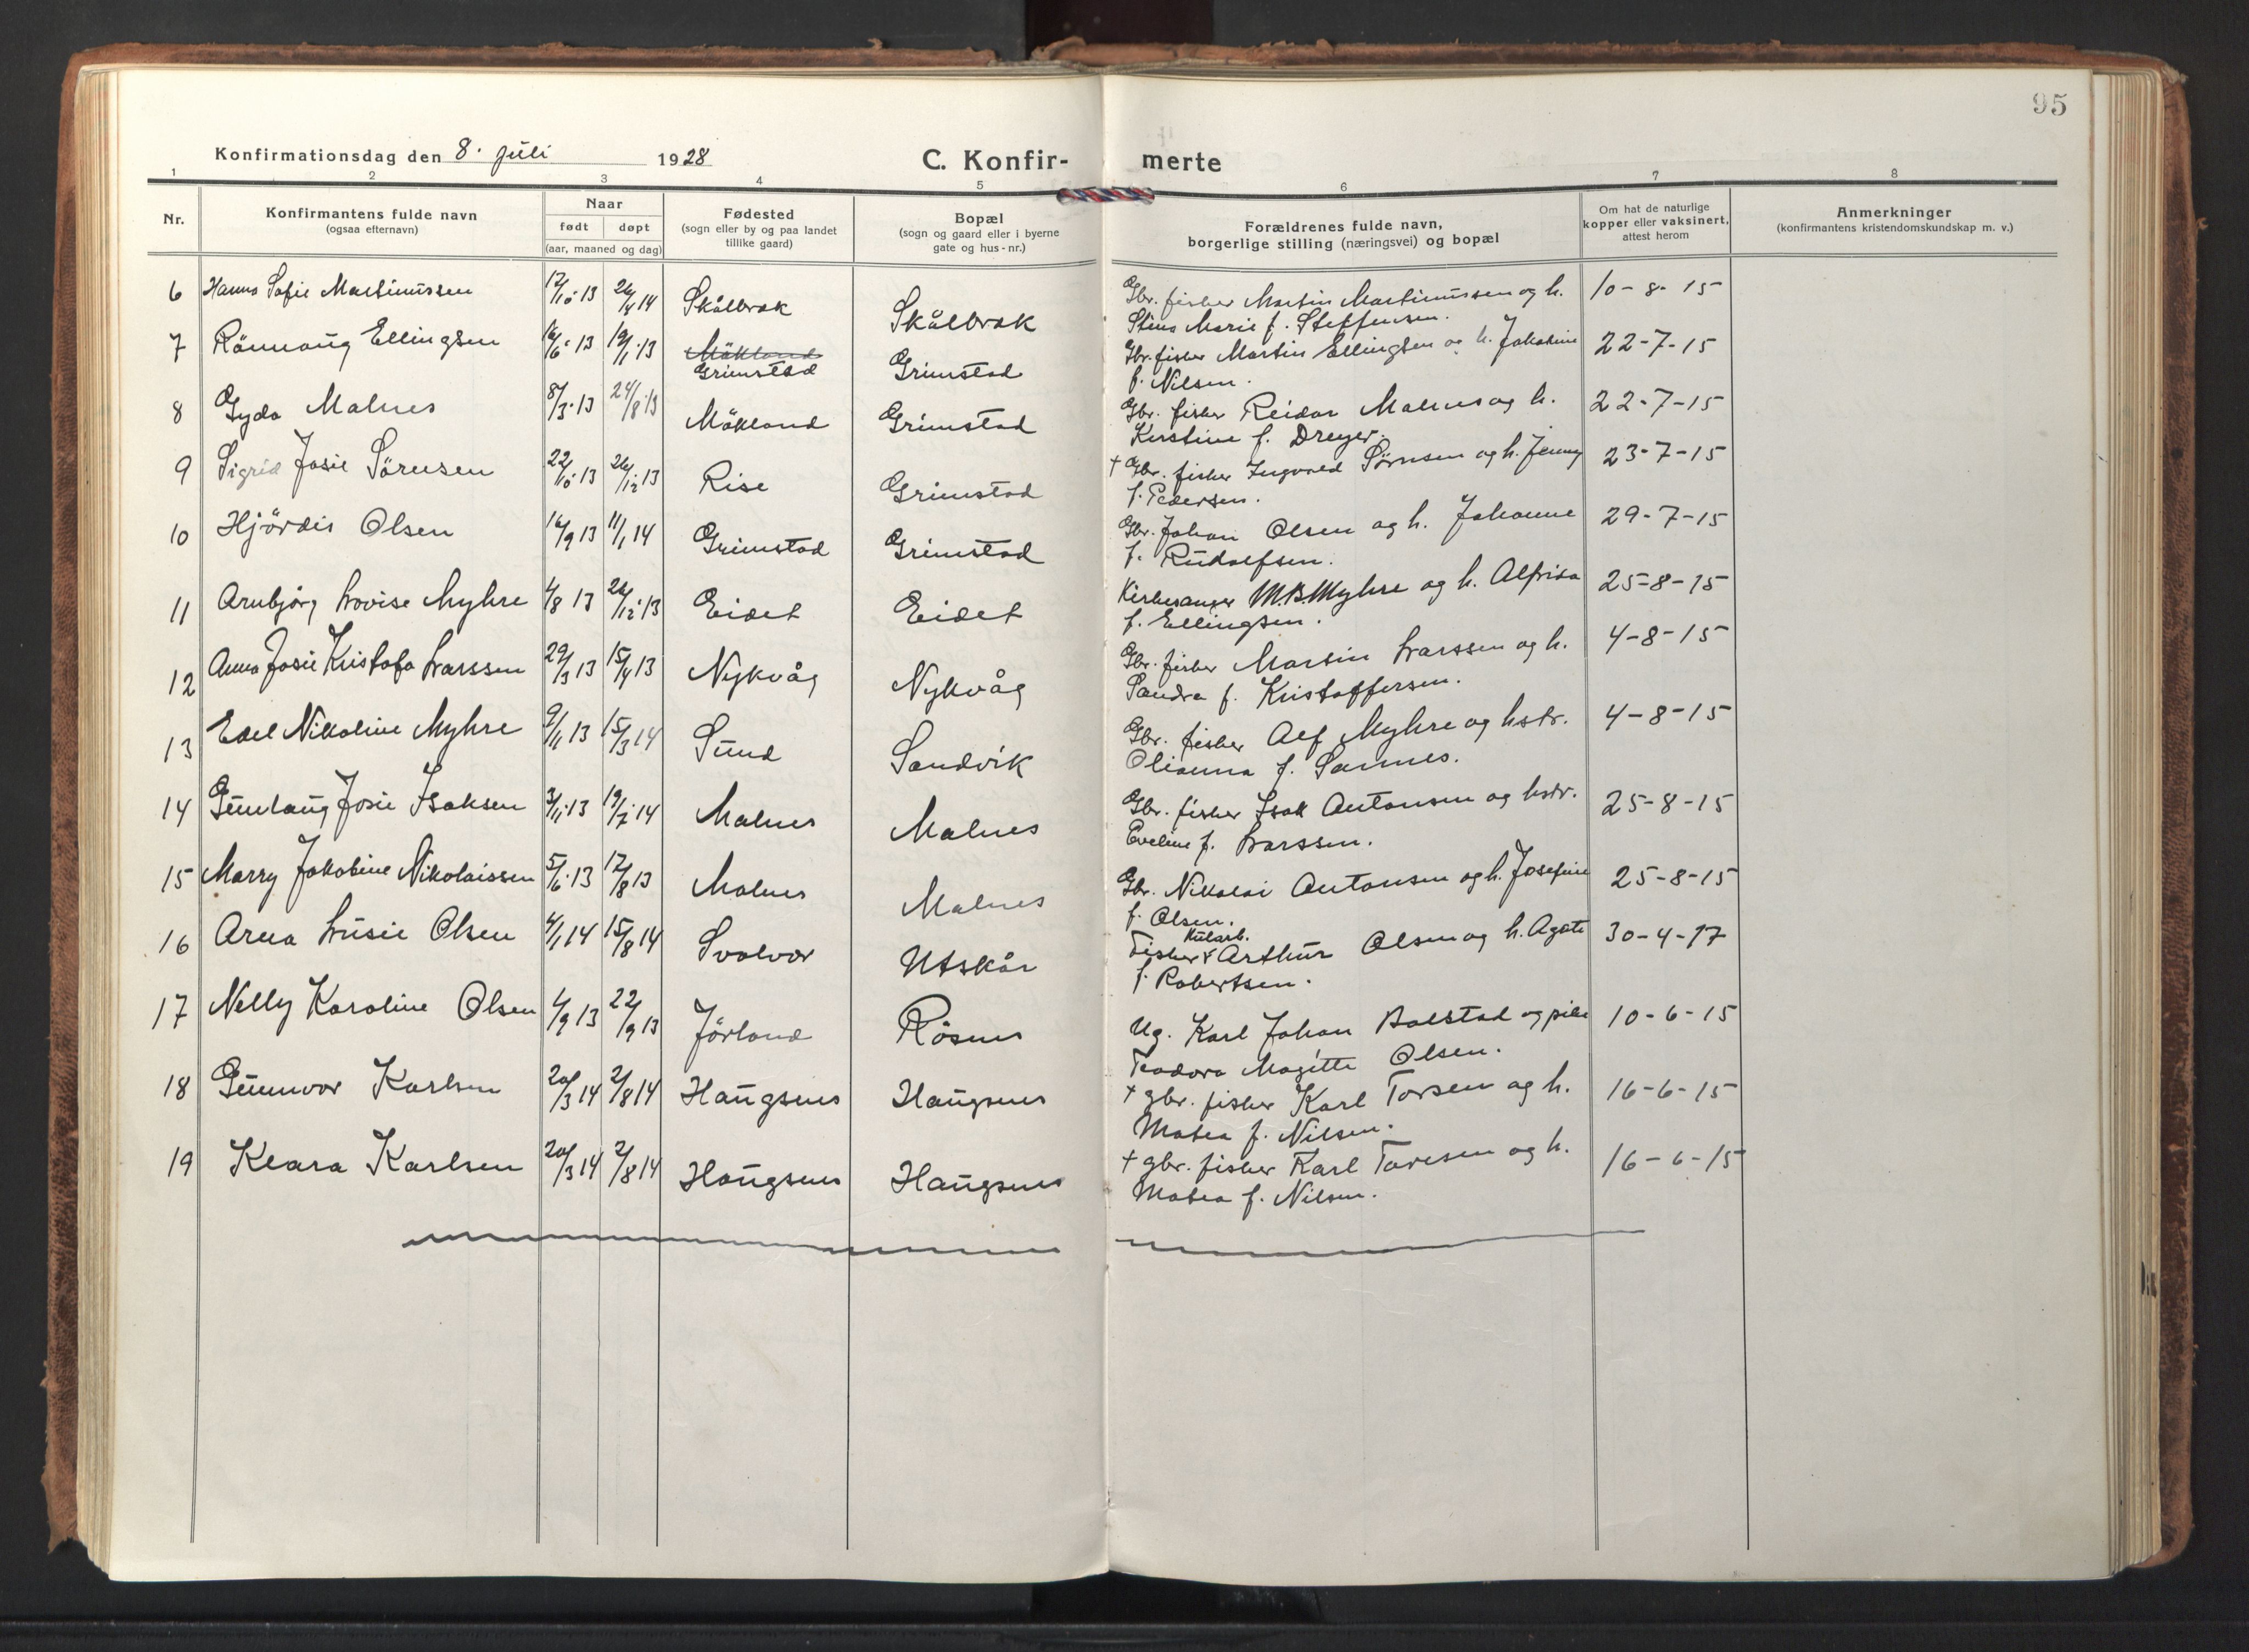 95
Konfirmationsdag den 8. juli 1928 C. Konfir- merte
1 2 3 4 5 6 7 8
Nr. Konfirmantens fulde navn (ogsaa efternavn) Naar født døpt (aar, maaned og dag) Fødested (sogn eller by og paa landet tillike gaard) Bopæl (sogn og gaard eller i byerne gate og hus-nr.) Forældrenes fulde navn, borgerlige stilling (næringsvei) og bopæl Om hat de naturlige kopper eller vaksinert, attest herom Anmerkninger (konfirmantens kristendomskundskap m. v.)
6 Hanna Sofie Martinussen 17/10-13 26/4 14 Skålbrak Skålbrak Gbr. fisker Martin Martinussen og h. 10-8-15
Stina Marie f. Steffensen.
7 Rönnaug Ellingsen 16/6-13 19/1-13 Mökland Grimstad Grimstad Gbr. fisker Martin Ellingsen og h. Jakobine 22-7-15
f. Nilsen.
8 Gyda Malnes 8/3-13 24/8-13 Mökland Grimstad Gbr. fisker Reidar Malnes og h. 22-7-15
Kristine f. Dreyer.
9 Sigrid Josie Sörensen 22/10-13 26/12 13 Rise Grimstad + Gbr. fisker Ingvald Sørnsen og h. Jenny 23-7-15
f. Pedersen.
10 Hjördis Olsen 16/9 13 11/1 14 Grimstad Grimstad Gbr. Johan Olsen og h. Johanne 29-7-15
f. Rudolfsen.
11 Arnbjörg Lovise Myhre 4/8 13 26/12-13 Eidet Eidet Kirkesanger M.B. Myhre og h. Alfrida 25-8-15
f. Ellingsen.
12 Anna Josie Kristofa Larssen 29/3 13 15/4 13 Nykvåg Nykvåg Gbr. fisker Martin Larssen og h. 4-8-15
Sandra f. Kristoffersen.
13 Edel Nikoline Myhre 9/11 13 15/3 14 Sund Sandvik Gbr. fisker Alf Myhre og hstr. 4-8-15
Olianna f. Sannes.
14 Gunlaug Josie Isaksen 3/11-13 19/7-14 Malnes Malnes Gbr. fisker Isak Antonsen og hstr. 25-8-15
Eveline f. Larssen.
15 Marry Jakobine Nikolaissen 5/6-13 17/8 13 Malnes Malnes Gbr. Nikolai Antonsen og h. Josefine 25-8-15
f. Olsen.
16 Arna Lusie Olsen 4/1 14 15/8 14 Svolvær Utskår Fisker & kularb. Arthur Olsen og h. Agate 30-4-17
f. Robertsen.
17 Nelly Karoline Olsen 4/9 13 22/9 13 Jörland Rösnes Ug. Karl Johan Bolstad og pike 10-6-15
Teodora Magitte Olsen.
18 Gunnvor Karlsen 20/3 14 2/8 14 Haugsnes Haugsnes + gbr. fisker Karl Torsen og h. 16-6-15
Matea f. Nilsen.
19 Klara Karlsen 20/3 14 2/8 14 Haugsnes Haugsnes + gbr. fisker Karl Toresen og h. 16-6-15
Matea f. Nilsen.